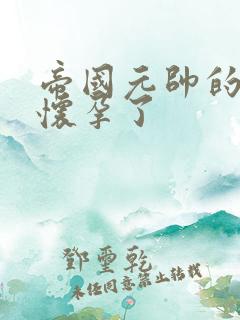 帝國元帥的
懷孕了
鄧璽乾
未經同意禁止轉載